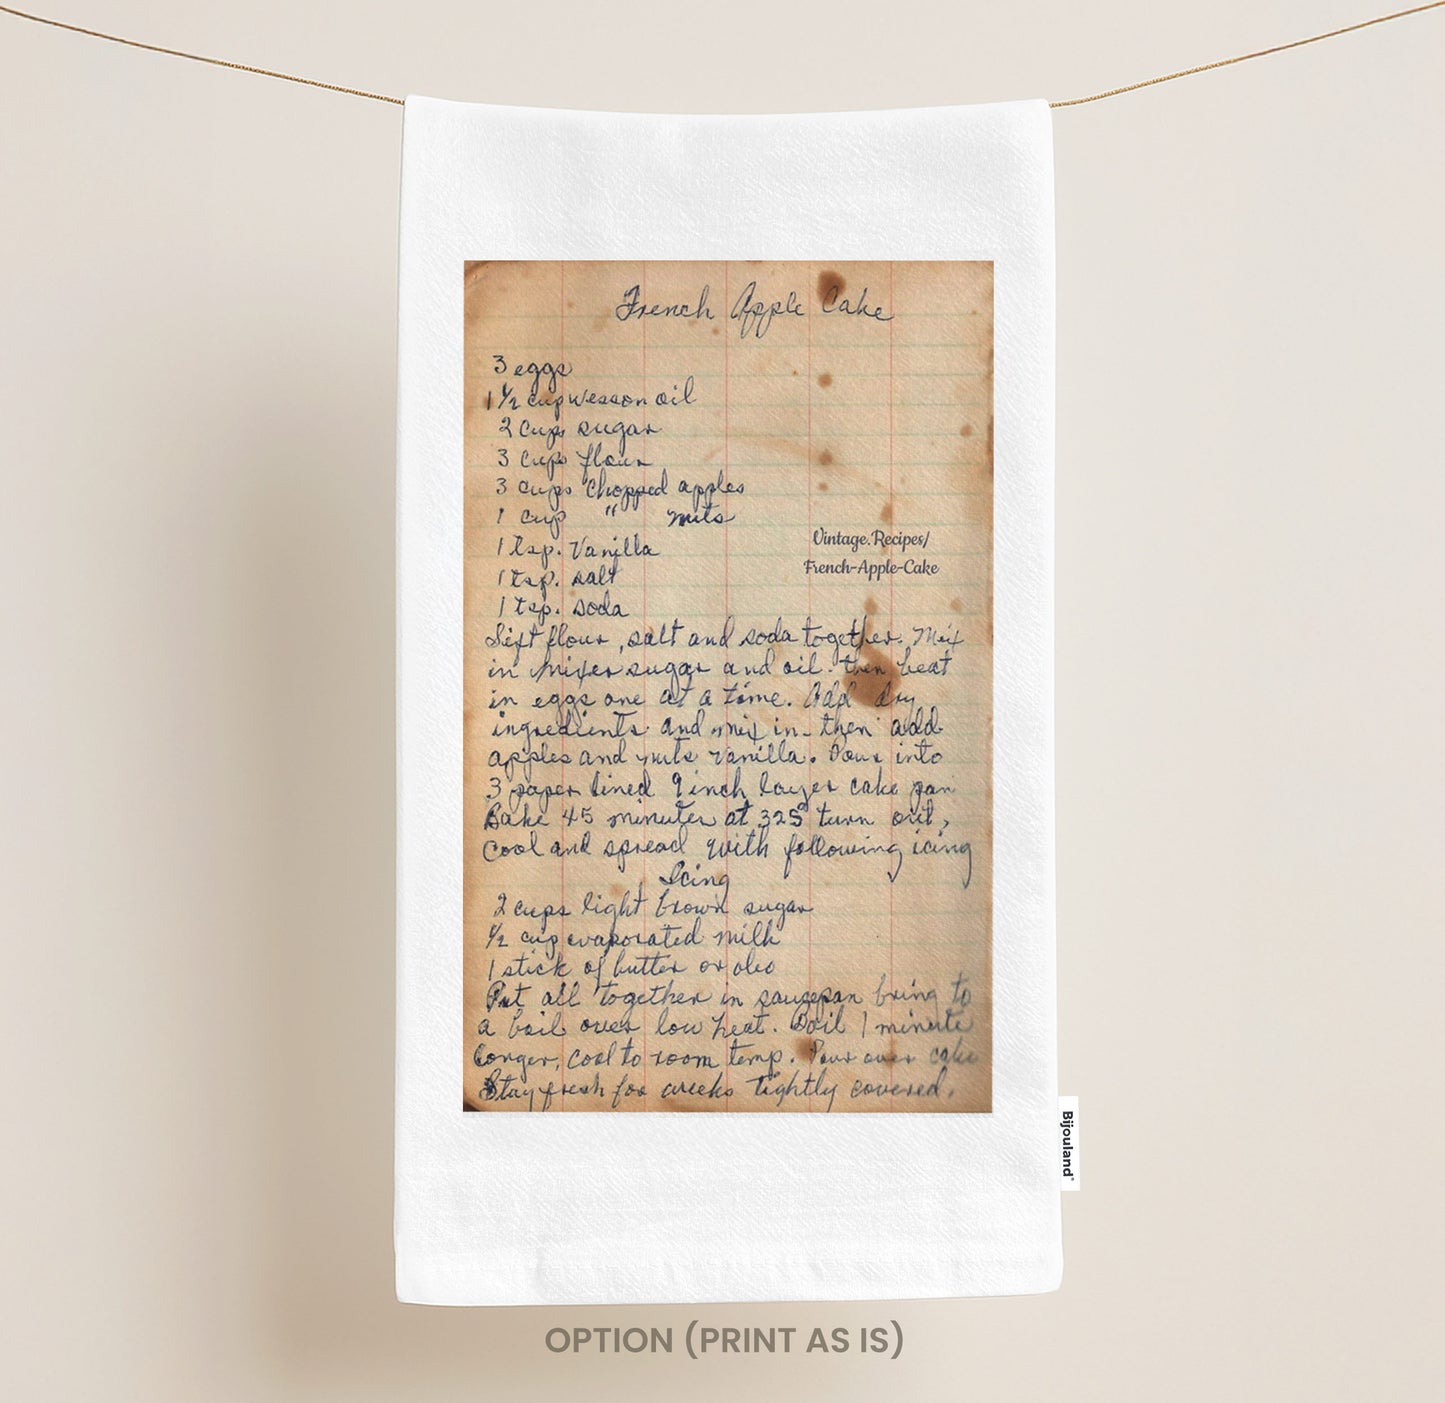 French Apple Cake
3 eggs
1 1/2 cup wesson oil
2 cups sugar
3 cups flour
3 cups chopped apples
1 cup " nuts
1 tsp. Vanilla
1 tsp. salt
1 tsp. soda
Vintage.Recipes/
French-Apple-Cake
Sift flour, salt and soda together. Mix
in mixer sugar and oil. then beat
in eggs one at a time. Add dry
ingredients and mix in - then add
apples and nuts vanilla. Pour into
3 paper lined 9 inch layer cake pan
Bake 45 minutes at 325° turn out,
Cool and spread with following icing
Icing
2 cups light brown sugar
1/2 cup evaporated milk
1 stick of butter or oleo
Put all together in saucepan bring to
a boil over low heat. Boil 1 minute
longer, cool to room temp. Pour over cake
Stay fresh for weeks tightly covered.
Bijouland
OPTION (PRINT AS IS)